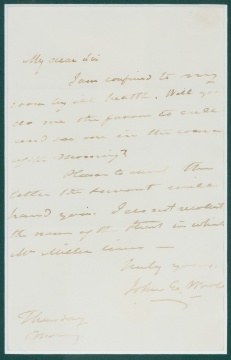 My dear Sir
I am confined to my
room by ill health. Will you
do me the favor to call
and see me in the course
of the morning?
Please to send the
letter the servant will
hand you. I do not recollect
the name of the Street in which
Mr Miller lives —
Truly yours,
John E. Wool
Thursday
Morng